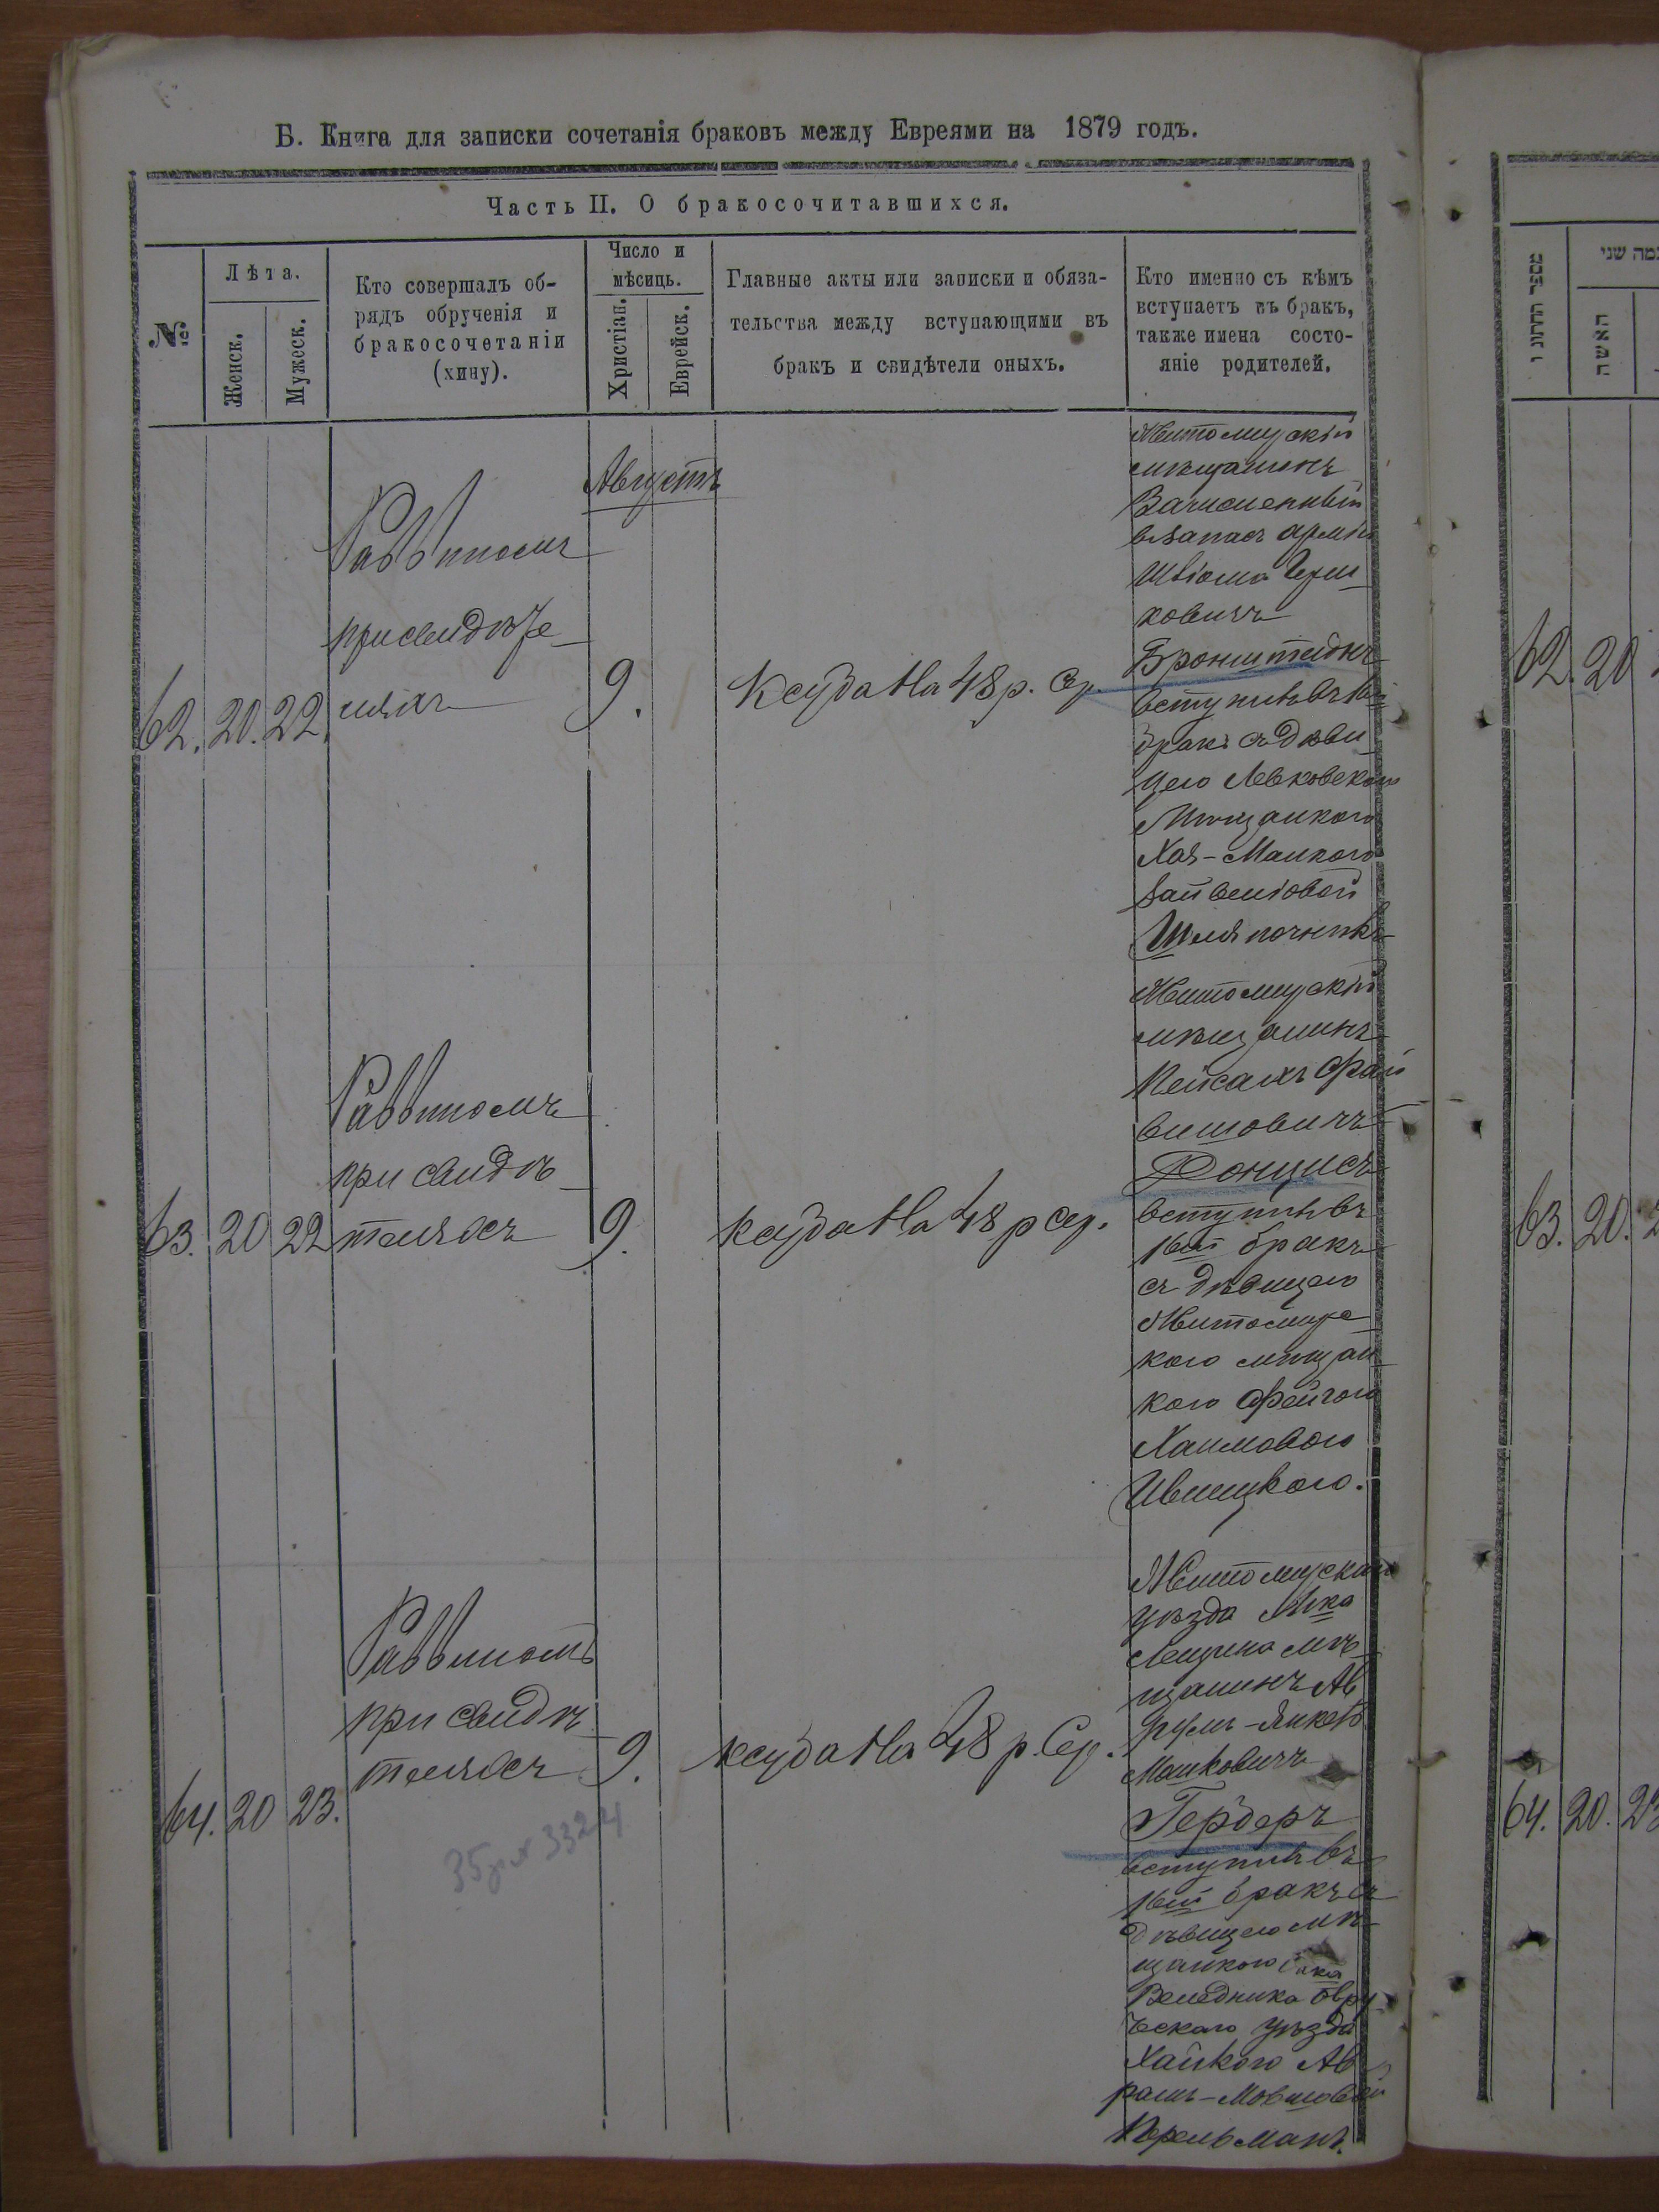 Б. Книга для записки сочетанія браковъ между Евреями на 1879 годъ.
Часть II. О бракосочитавшихся.
№
Лѣта.
Женск.
Мужеск.
Кто совершалъ об-
рядъ обрученія и
бракосочетаніи
(хину).
Число и
мѣсяць.
Христіан.
Еврейск.
Главные акты или записки и обяза-
тельства между вступающими въ
бракъ и свидѣтели оныхъ.
Кто именно съ кѣмъ
вступаетъ въ бракъ,
также имена состо-
яніе родителей.
Августъ
62. 20. 22.
Раввиномъ
при свидѣте-
ляхъ
9.
Ксуба на 48 р. Сер.
Житомирскій
мѣщанинъ
Зачисленный
в запас арміи
ковичъ
Бронштейнъ
вступилъ въ 1й
бракъ съ дѣви
цею Левковскою
Мѣщанкою
Хая-Малкою
Зайвеліовой
Шляпочникъ
63. 20 22
Раввиномъ
при свидѣ-
теляхъ
9.
ксуба на 48 р сер.
Житомирскій
мѣщанинъ
Пейсахъ Фай
вишовичъ
Донцисъ
вступилъ въ
1вый бракъ
съ дѣвицею
Житомирс-
кою мѣщан
кою Фейгою
Хаимовою
Ивницкою.
64. 20 23.
Раввиномъ
при свидѣ
теляхъ
9.
ксуба на 48 р. Сер.
Житомирскаго
уѣзда М-ка
Лещина мѣ-
щанинъ Ав
румъ-Янкель
Машковичъ
Герберъ
вступилъ въ
1вый бракъ съ
дѣвицею мѣ-
щанкою
Веледника Овру
ческаго уѣзда
Хайкою Ав
рамъ-Мовшовой
Перельманъ.
מספר החתונ ו
האשה
62. 20
63. 20.
64. 20. 23